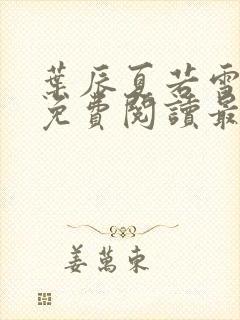 葉辰夏若雪
免費閱讀最
姜萬東